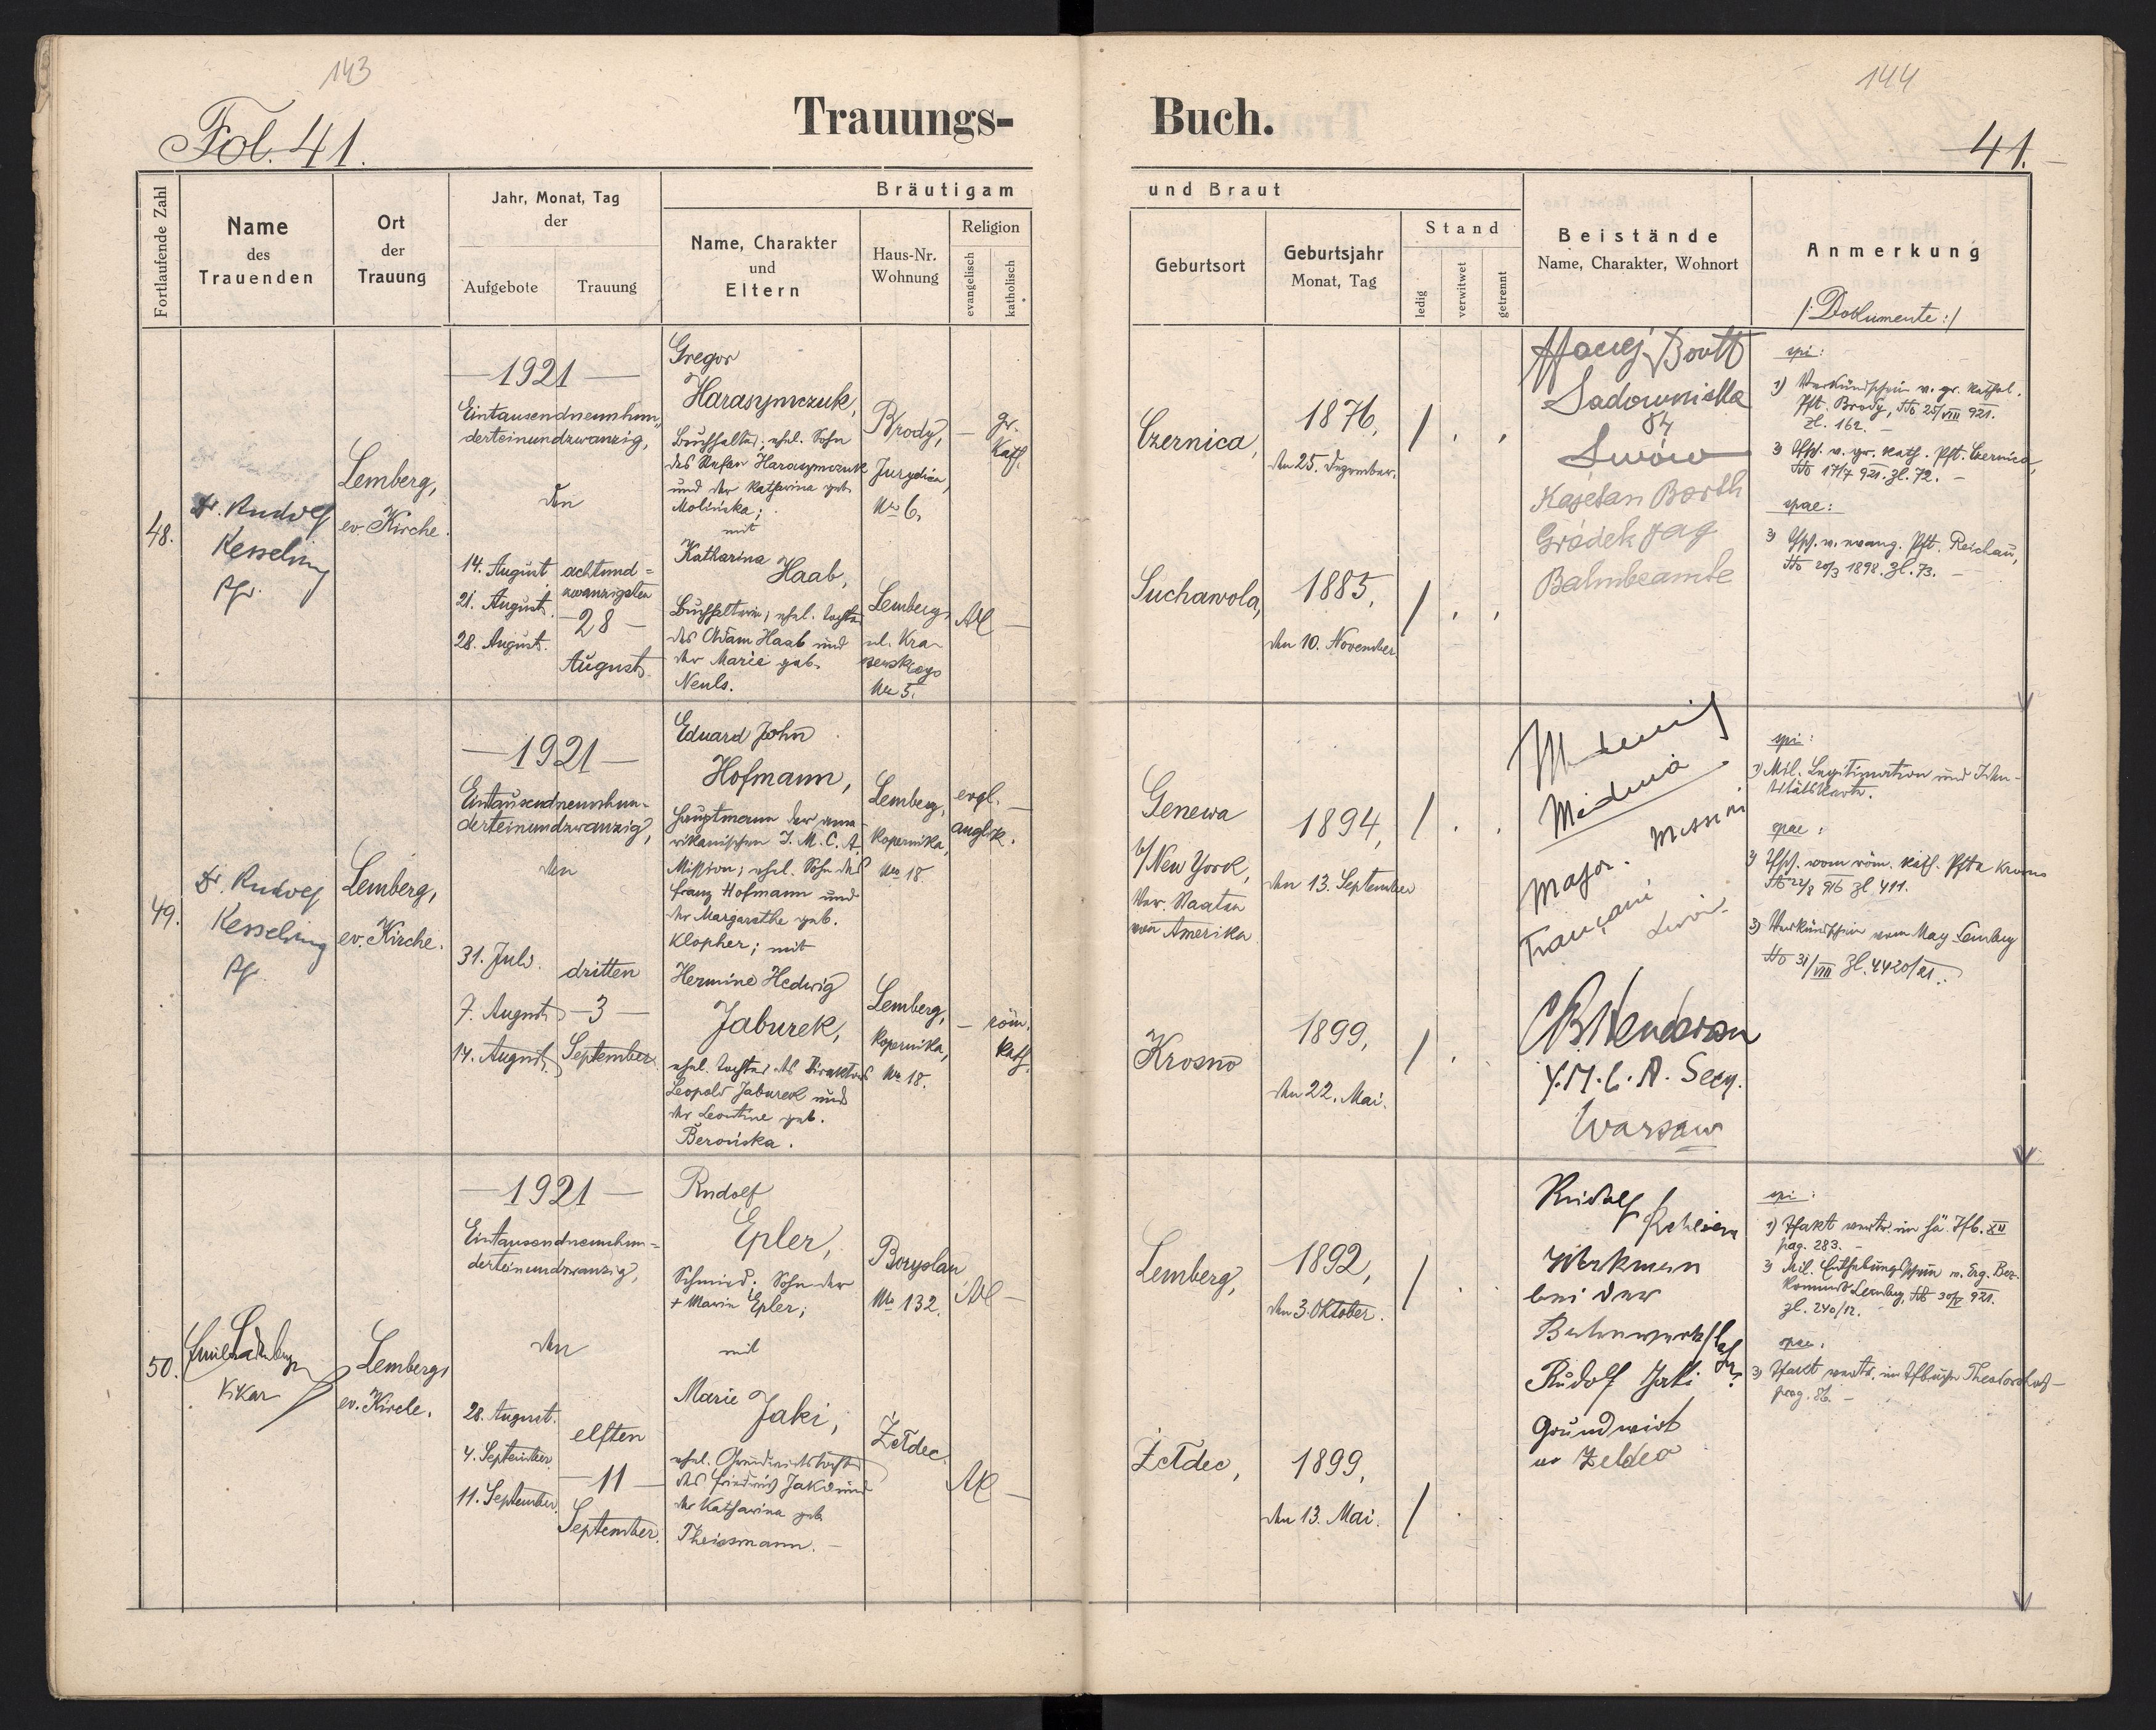 143
144
Fol. 41.
Trauungs-
Buch.
41.
Fortlaufende Zahl
Name
des
Trauenden
Ort
der
Trauung
Jahr, Monat, Tag
der
Aufgebote
Trauung
Bräutigam
Name, Charakter
und
Eltern
Haus-Nr.
Wohnung
Religion
evangelisch
katholisch
und Braut
Geburtsort
Geburtsjahr
Monat, Tag
Stand
ledig
verwitwet
getrennt
Beistände
Name, Charakter, Wohnort
Anmerkung
/: Dokumente :/
48.
Dr. Rudolf
Kesselring
Pfr.
Lemberg,
ev. Kirche.
—1921—
Eintausendneunhun-
derteinundzwanzig,
den
14. August
21. August.
28. August.
achtund=
zwanzigsten
—28—
August.
Gregor
Harasymczuk,
Buchhalter; ehel. Sohn
des Stefan Harasymczuk
und der Katharina geb.
Molińska;
mit
Katharina
Haab,
Buchhalterin, ehel. Tochter
des Adam Haab und
der Marie geb.
Neuls.
Brody,
Jurydica,
Nr 6.
Lemberg,
ul. Kra-
szewskiego
Nr 5.
— gr.
kath.
AC —
Czernica,
Suchawola,
1876,
den 25. Dezember.
1885,
den 10. November.
Maciej
Sadownicka
84
Lwów
Kajetan Barth
Gródek Jag
Bahnbeamte
spi:
1) Verkündschein v. gr. kathol.
Pft. Brody, dto 25/VIII 921.
Zl. 162. —
2) Tfsch. v. gr. kath. Pft. Czernica,
dto 17/7 921. Zl. 72. —
spae:
3) Tfsch. v. evang. Pft. Reichau,
dto 20/3 1898. Zl. 73. —
49.
Dr. Rudolf
Kesselring
Pfr.
Lemberg,
ev. Kirche.
—1921—
Eintausendneunhun-
derteinundzwanzig,
den
31. Juli.
7. August
14. August.
dritten
—3—
September.
Eduard John
Hofmann,
Hauptmann der ame-
rikanischen I. M. C. A.
Mission; ehel. Sohn des
Franz Hofmann und
der Margarethe geb.
Klopher; mit
Hermine Hedwig
Jaburek,
ehel. Tochter des Direktors
Leopold Jaburek und
der Leontine geb.
Berońska.
Lemberg,
Kopernika,
Nr 18.
Lemberg,
Kopernika,
Nr 18.
engl. —
anglik.
— röm.
kath.
Genewa
b/New York,
Ver. Staaten
von Amerika
Krosno
1894,
den 13. September
1899,
den 22. Mai.
Major. Mission
Française
Y.M.C.A. Secy.
Warsaw
spi:
1) Mil. Legitimation und Iden-
titätskarte.
spae:
2) Tfsch. vom röm. kath. Pfta Krosno
Zl 411.
3) Verkündschein vom Mag Lemberg
dto 31/VIII Zl. 4420/21.
50.
Vikar
Lemberg,
ev. Kirche.
—1921—
Eintausendneunhun=
derteinundzwanzig,
den
28. August.
4. September
11. September.
elften
—11—
September.
Rudolf
Epler,
Schmied; Sohn der
+ Marie Epler;
mit
Marie
Jaki,
ehel. Grundwirtstochter
des Friedrich Jaki und
der Katharina geb.
Theissmann. —
Boryslau
Nr 132.
Żełdec.
AC —
AC —
Lemberg,
Żełdec,
1892,
den 3. Oktober.
1899,
den 13. Mai.
Rudolf
Werkmann
bei der
Rudolf Jaki
Grundwirt
in Zeldec
spi:
1) Tfakt vertr. im hä. Tfb. XII
pag. 283. —
2) Mil. Enthebungsschein v. Erg. Bez.
Kommando Lemberg, 921.
Zl. 240/12. —
spae:
3) Tfakt vertr. im Tfbuche Theodorshof —
pag. 86. —